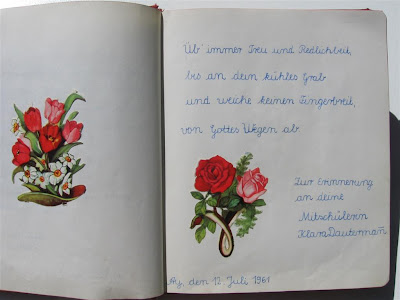 Üb' immer Treu und Redlichkeit,
bis an dein kühles Grab
und weiche keinen Fingerbreit,
von Gottes Wegen ab.
Zur Erinnerung
an deine
Mitschülerin
Klara
den 12. Juli 1961